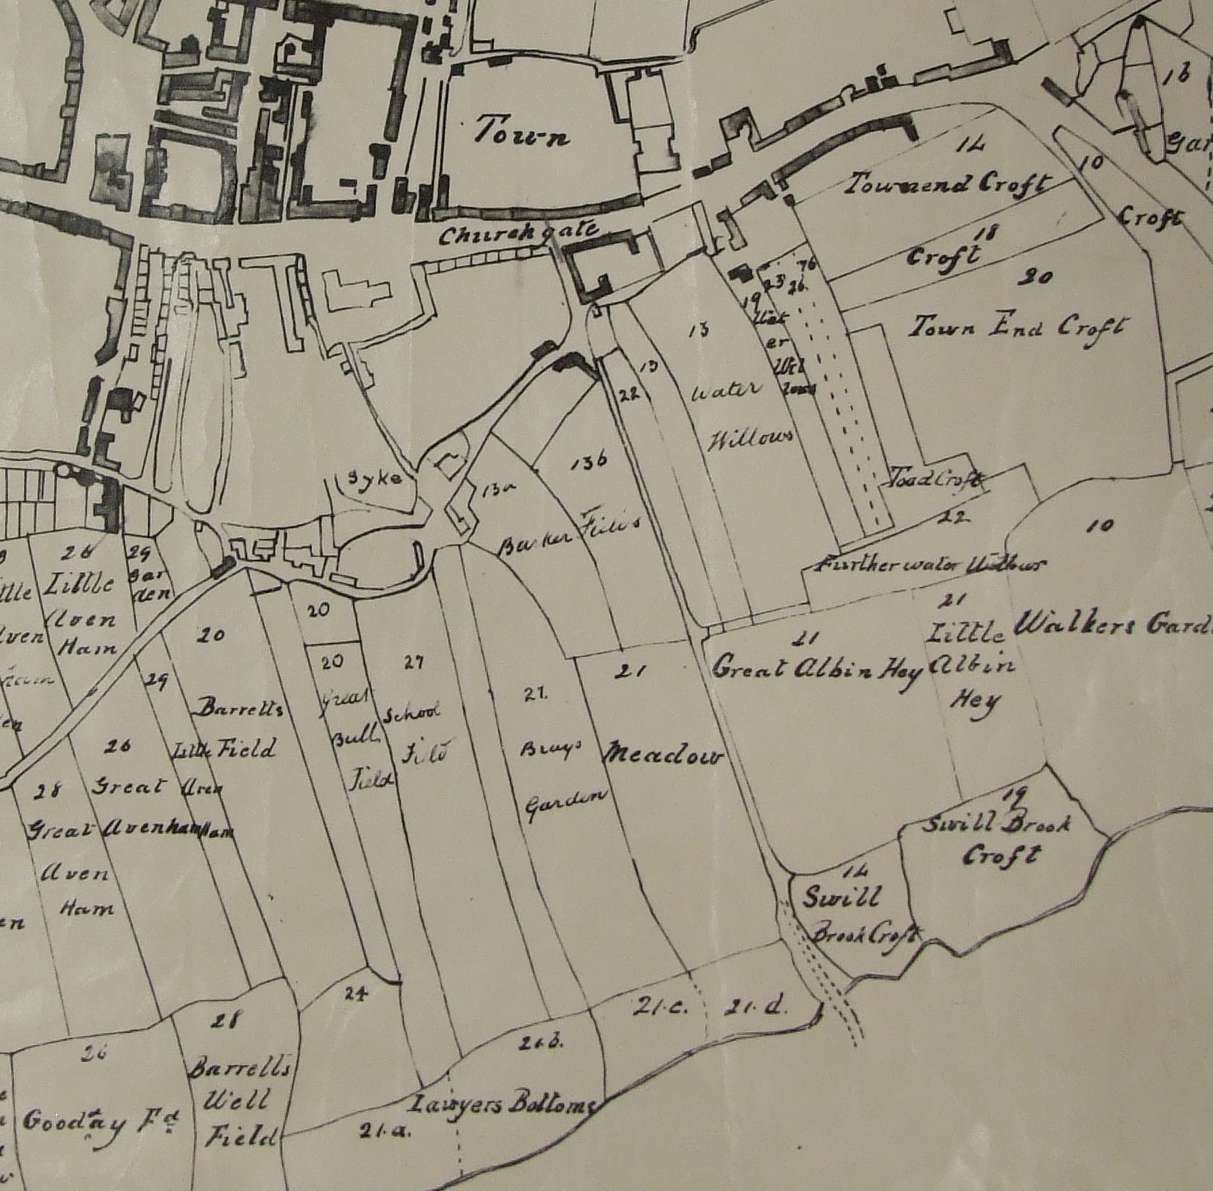 Town
Churchgate
14
Townend Croft
18
Croft
10
Croft
16
20
Town End Croft
76
23
26
19
Wat
er
Wil
lows
13
Water
Willows
13
22
Toad Croft
22
Further water Willows
10
Walkers Gard
Syke
13a
13b
Barker Fields
28
Little
Aven
Ham
29
Gar
den
20
29
Barretts
Little Field
Aven
Ham
20
20
Great
Bull
Field
27
School
Field
21
Brays
Garden
21
Meadow
21
Great Albin Hey
21
Little
Albin
Hey
26
Great
Avenham
28
Great
Aven
Ham
19
Swill Brook
Croft
14
Swill
Brook Croft
24
28
Barretts
Well
Field
26
Gooday Fd
21.c.
21.d.
Lawyers Bottoms
21.a.